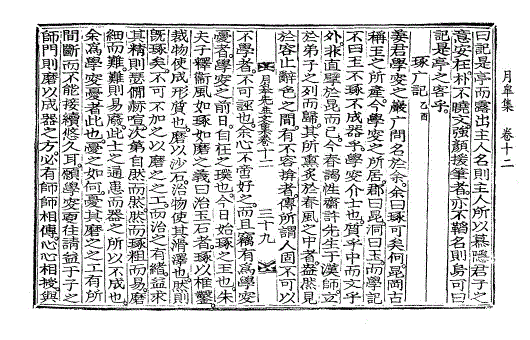 月皐集 卷十二
曰記是亭而露出主人名則主人所以慕隱君子之
意安在朴不曉文強顏接筆者亦不韜名則烏可曰
記是亭之客乎
琢广記 乙酉
姜君學安之嚴广問名於余余曰琢可矣何昆岡古
稱玉之所產今學安之所居郡曰昆洞曰玉而學記
不曰玉不琢不成器乎學安介士也質乎中而文乎
外非直於昆而已今春謁性齋許先生于漢師立
於弟子之列而歸其所薰炙於春風之中者盎然見
於容止辭色之間有不容揜者傳所謂人固不可以
月皐先生文集卷十二 三十九
不學者不可誣也余心不啻好之而且竊有爲學安
憂者學安之前日自在之璞也今日始琢之玉也朱
夫子釋衛風如琢如磨之義曰治玉石者琢以椎鑿
裁物使成形質也磨以沙石治物使其滑澤也然則
既琢矣不可不加之以磨之之工而治之有緒益求
其精則瑟僩赫喧次第自然而然然而琢粗而易磨
細而難難則易廢此士之通患而器之所以不成也
余爲學安憂者此也憂之如何憂其磨之之工有所
間斷而不能接續悠久耳願學安更往請益于子之
師門則磨以成器之方必有師師相傳心心相授與